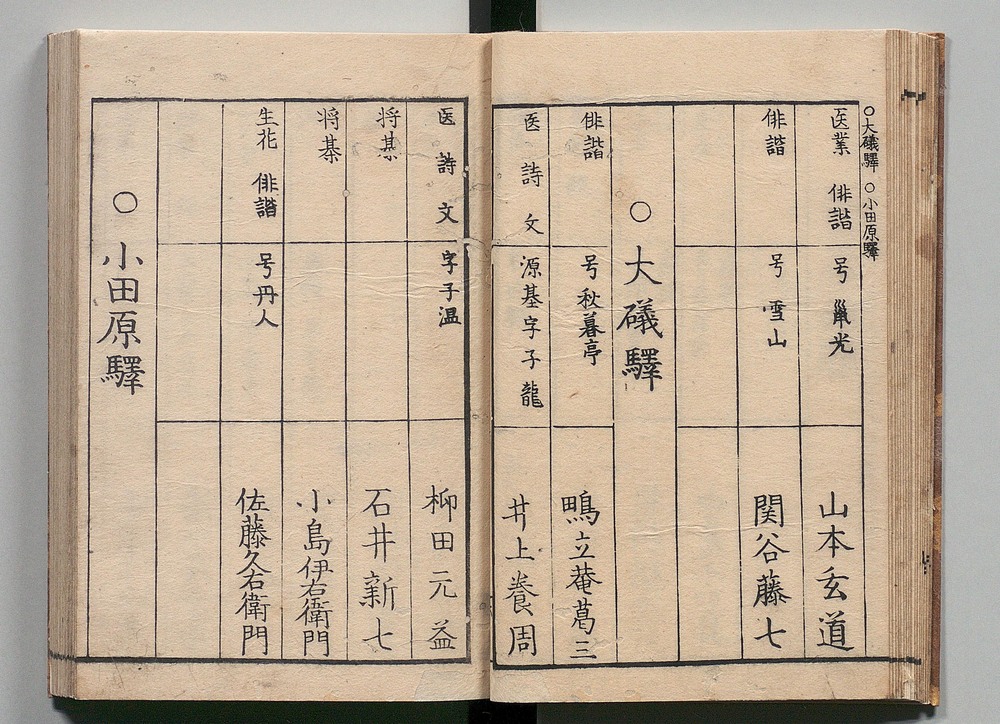 ○大磯驛 ○小田原驛
医業 俳諧 号巢光 山本玄道
俳諧 号雪山 関谷藤七
○大礒驛
俳諧 号秋暮亭 鴫立菴葛三
医 詩 文 源基字子龍 井上養周
医 詩 文 字子温 柳田元益
将棊 石井新七
将棊 小島伊右衛門
生花 俳諧 号丹人 佐藤久右衛門
○小田原驛